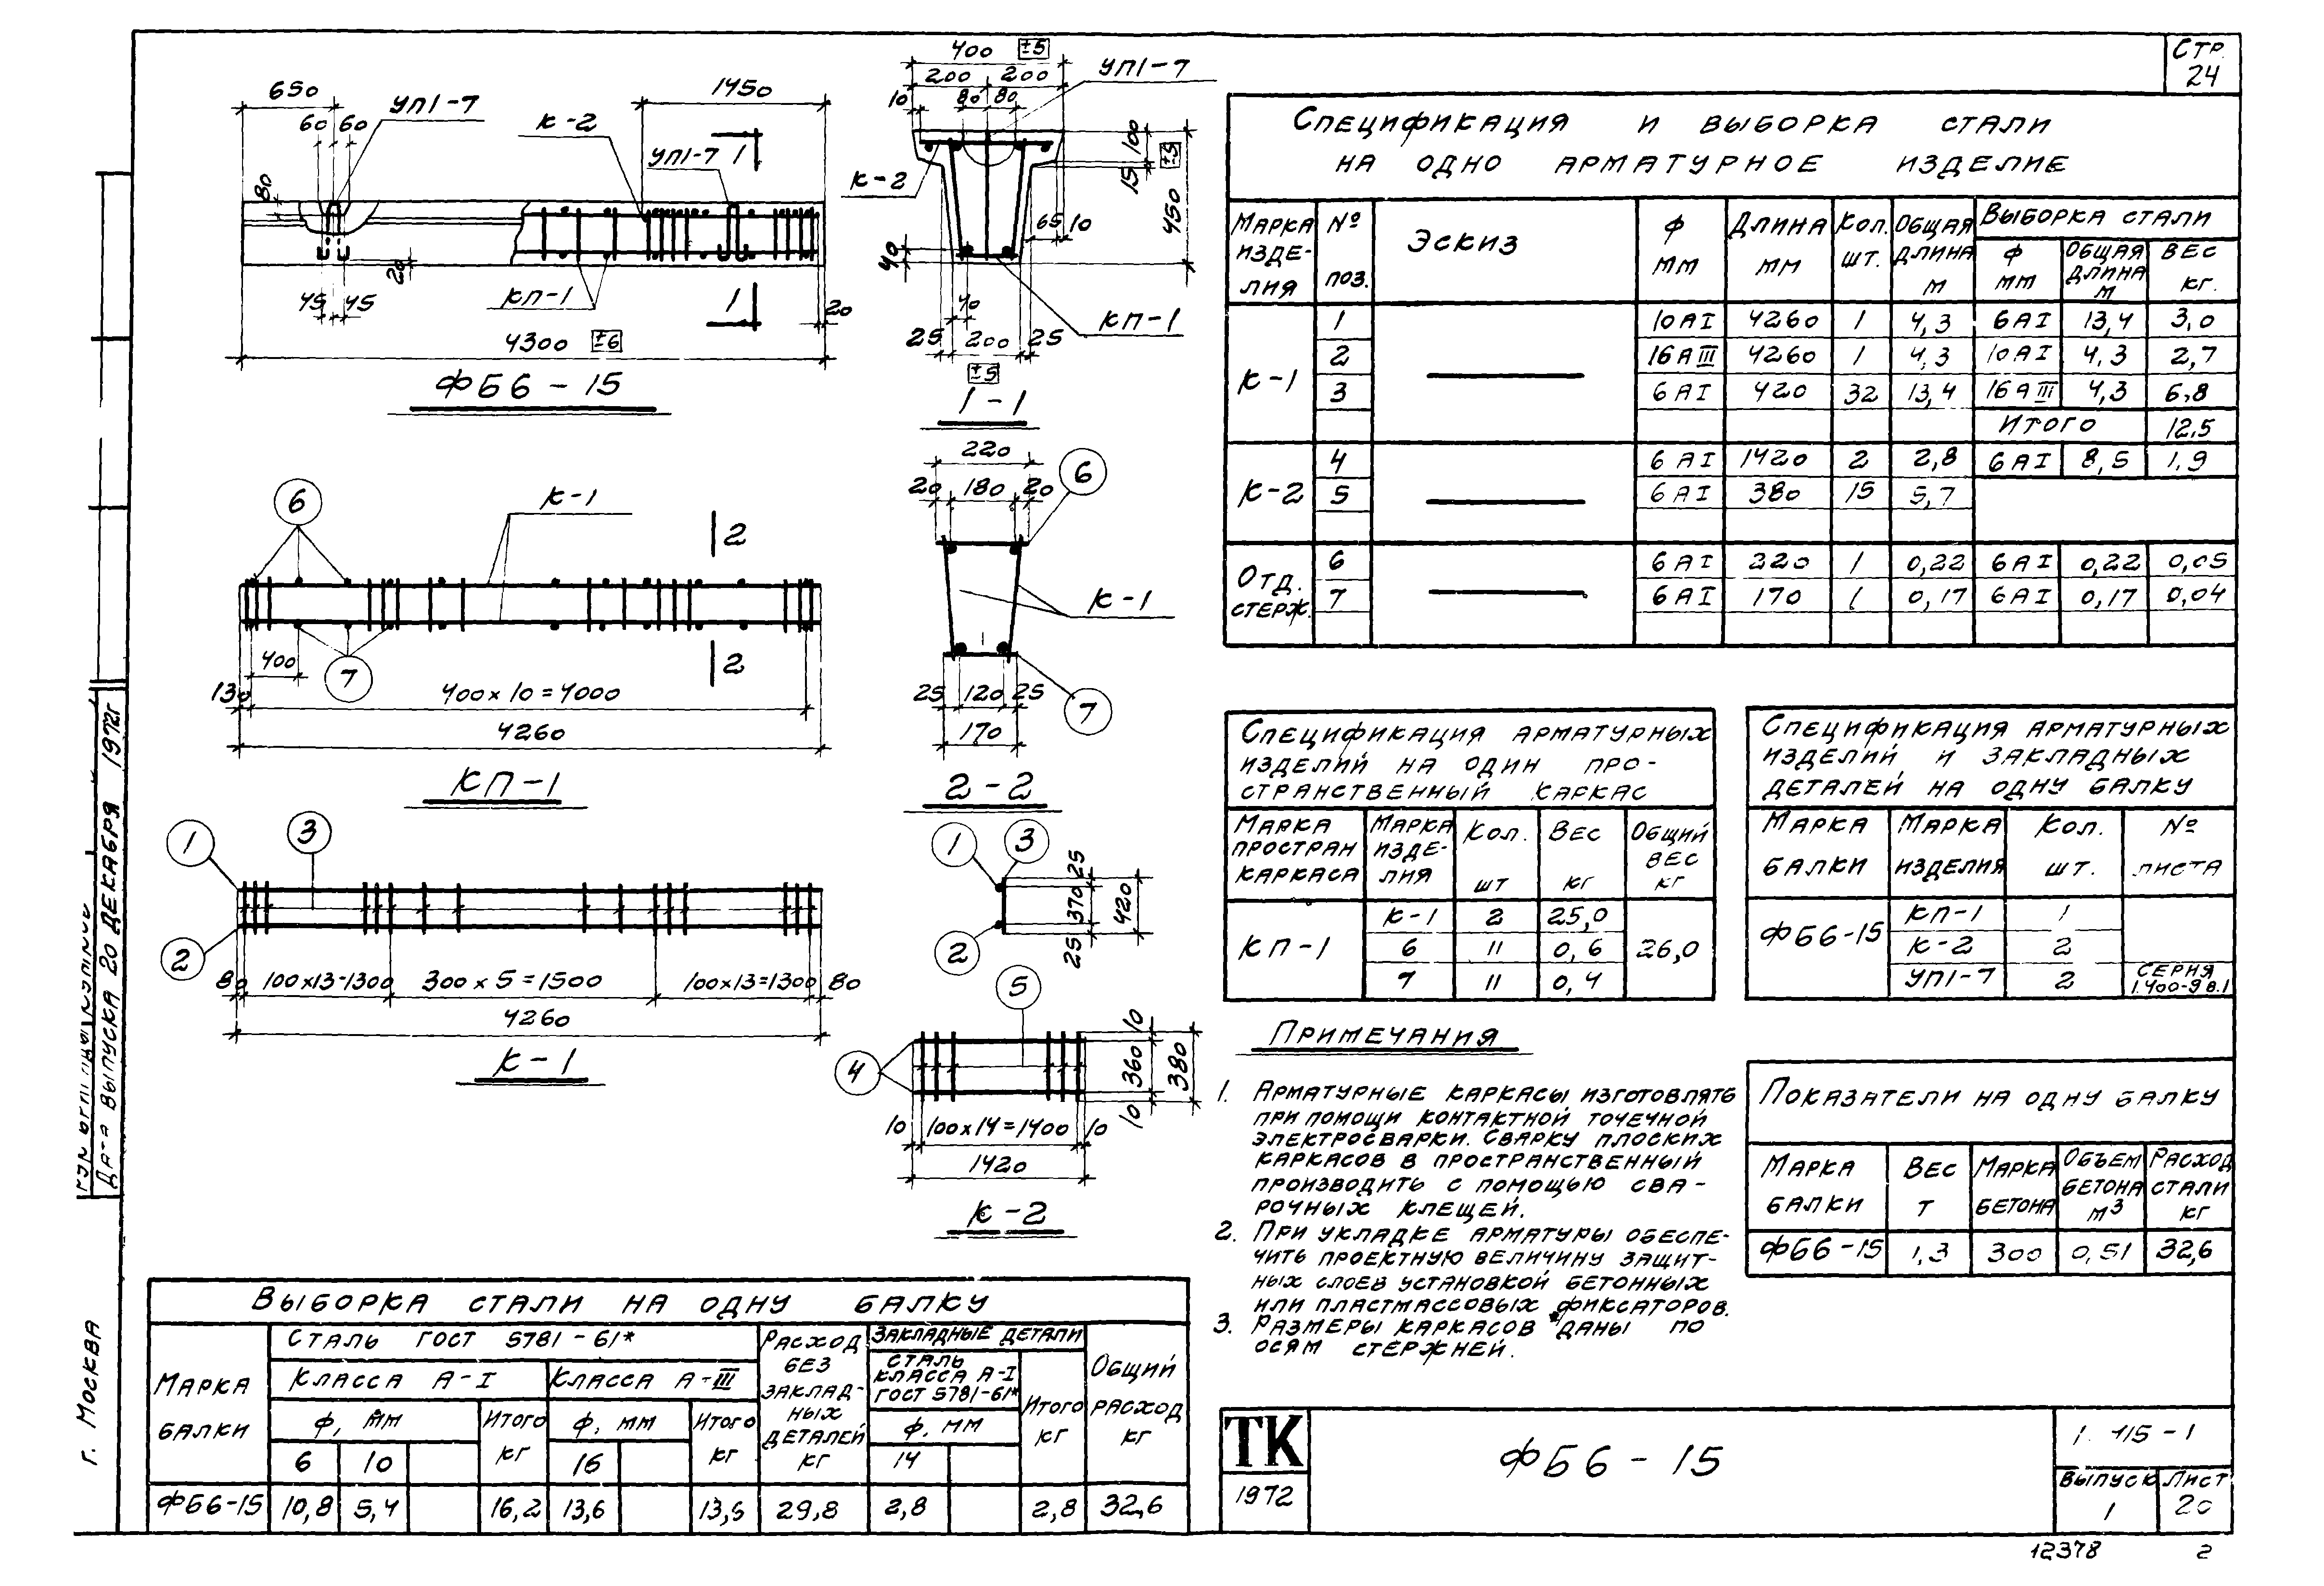 Стр.
24
650
60 60
УП1-7
К-2
1450
УП1-7
1
80
20
45 45
КП-1
1
20
4300 ±6
ФБ6-15
400 ±5
200 200
УП1-7
10 80 80
100
15
±5
450
К-2
65 10
40
40
25 200 25
КП-1
±5
1-1
6
К-1
2
400
7
130
400х10=4000
2
4260
КП-1
220
6
20 180 20
К-1
25 120 25
7
170
2-2
1
3
2
80 100х13=1300 300х5=1500 100х13=1300 80
4260
К-1
1
3
25
370
420
25
2
5
10
360
380
10
4
10 100х14=1400 10
1420
К-2
Спецификация и выборка стали
на одно арматурное изделие
Марка изделия № поз. Эскиз Ф мм Длина мм Кол. шт. Общая длина м Выборка стали
Ф мм Общая длина м Вес кг.
К-1 1 10АI 4260 1 4,3 6АI 13,4 3,0
2 16АIII 4260 1 4,3 10АI 4,3 2,7
3 6АI 420 32 13,4 16АIII 4,3 6,8
Итого 12,5
К-2 4 6АI 1420 2 2,8 6АI 8,5 1,9
5 6АI 380 15 5,7
Отд. стерж. 6 6АI 220 1 0,22 6АI 0,22 0,05
7 6АI 170 1 0,17 6АI 0,17 0,04
Спецификация арматурных
изделий на один про-
странственный каркас
Марка простран каркаса Марка изделия Кол. шт Вес кг Общий вес кг
КП-1 К-1 2 25,0 26,0
6 11 0,6
7 11 0,4
Спецификация арматурных
изделий и закладных
деталей на одну балку
Марка балки Марка изделия Кол. шт. № листа
ФБ6-15 КП-1 1
К-2 2
УП1-7 2 серия 1.400-9 в.1
Примечания
1. Арматурные каркасы изготовлять
при помощи контактной точечной
электросварки. Сварку плоских
каркасов в пространственный
производить с помощью сва-
рочных клещей.
2. При укладке арматуры обеспе-
чить проектную величину защит-
ных слоев установкой бетонных
или пластмассовых фиксаторов.
3. Размеры каркасов даны по
осям стержней.
Показатели на одну балку
Марка балки Вес т Марка бетона Объем бетона м3 Расход стали кг
ФБ6-15 1,3 300 0,51 32,6
Выборка стали на одну балку
Марка балки Сталь ГОСТ 5781-61* Расход без закладных деталей кг Закладные детали Общий расход кг
Класса А-I Класса А-III Сталь класса А-I ГОСТ 5781-61* Итого кг
Ф, мм Итого кг Ф, мм Итого кг Ф, мм
6 10 16 14
ФБ6-15 10,8 5,4 16,2 13,6 13,6 29,8 2,8 2,8 32,6
ТК
1972
ФБ6-15
1.115-1
Выпуск Лист
1 20
12378 2
Дата выпуска 20 декабря 1972г
г. Москва